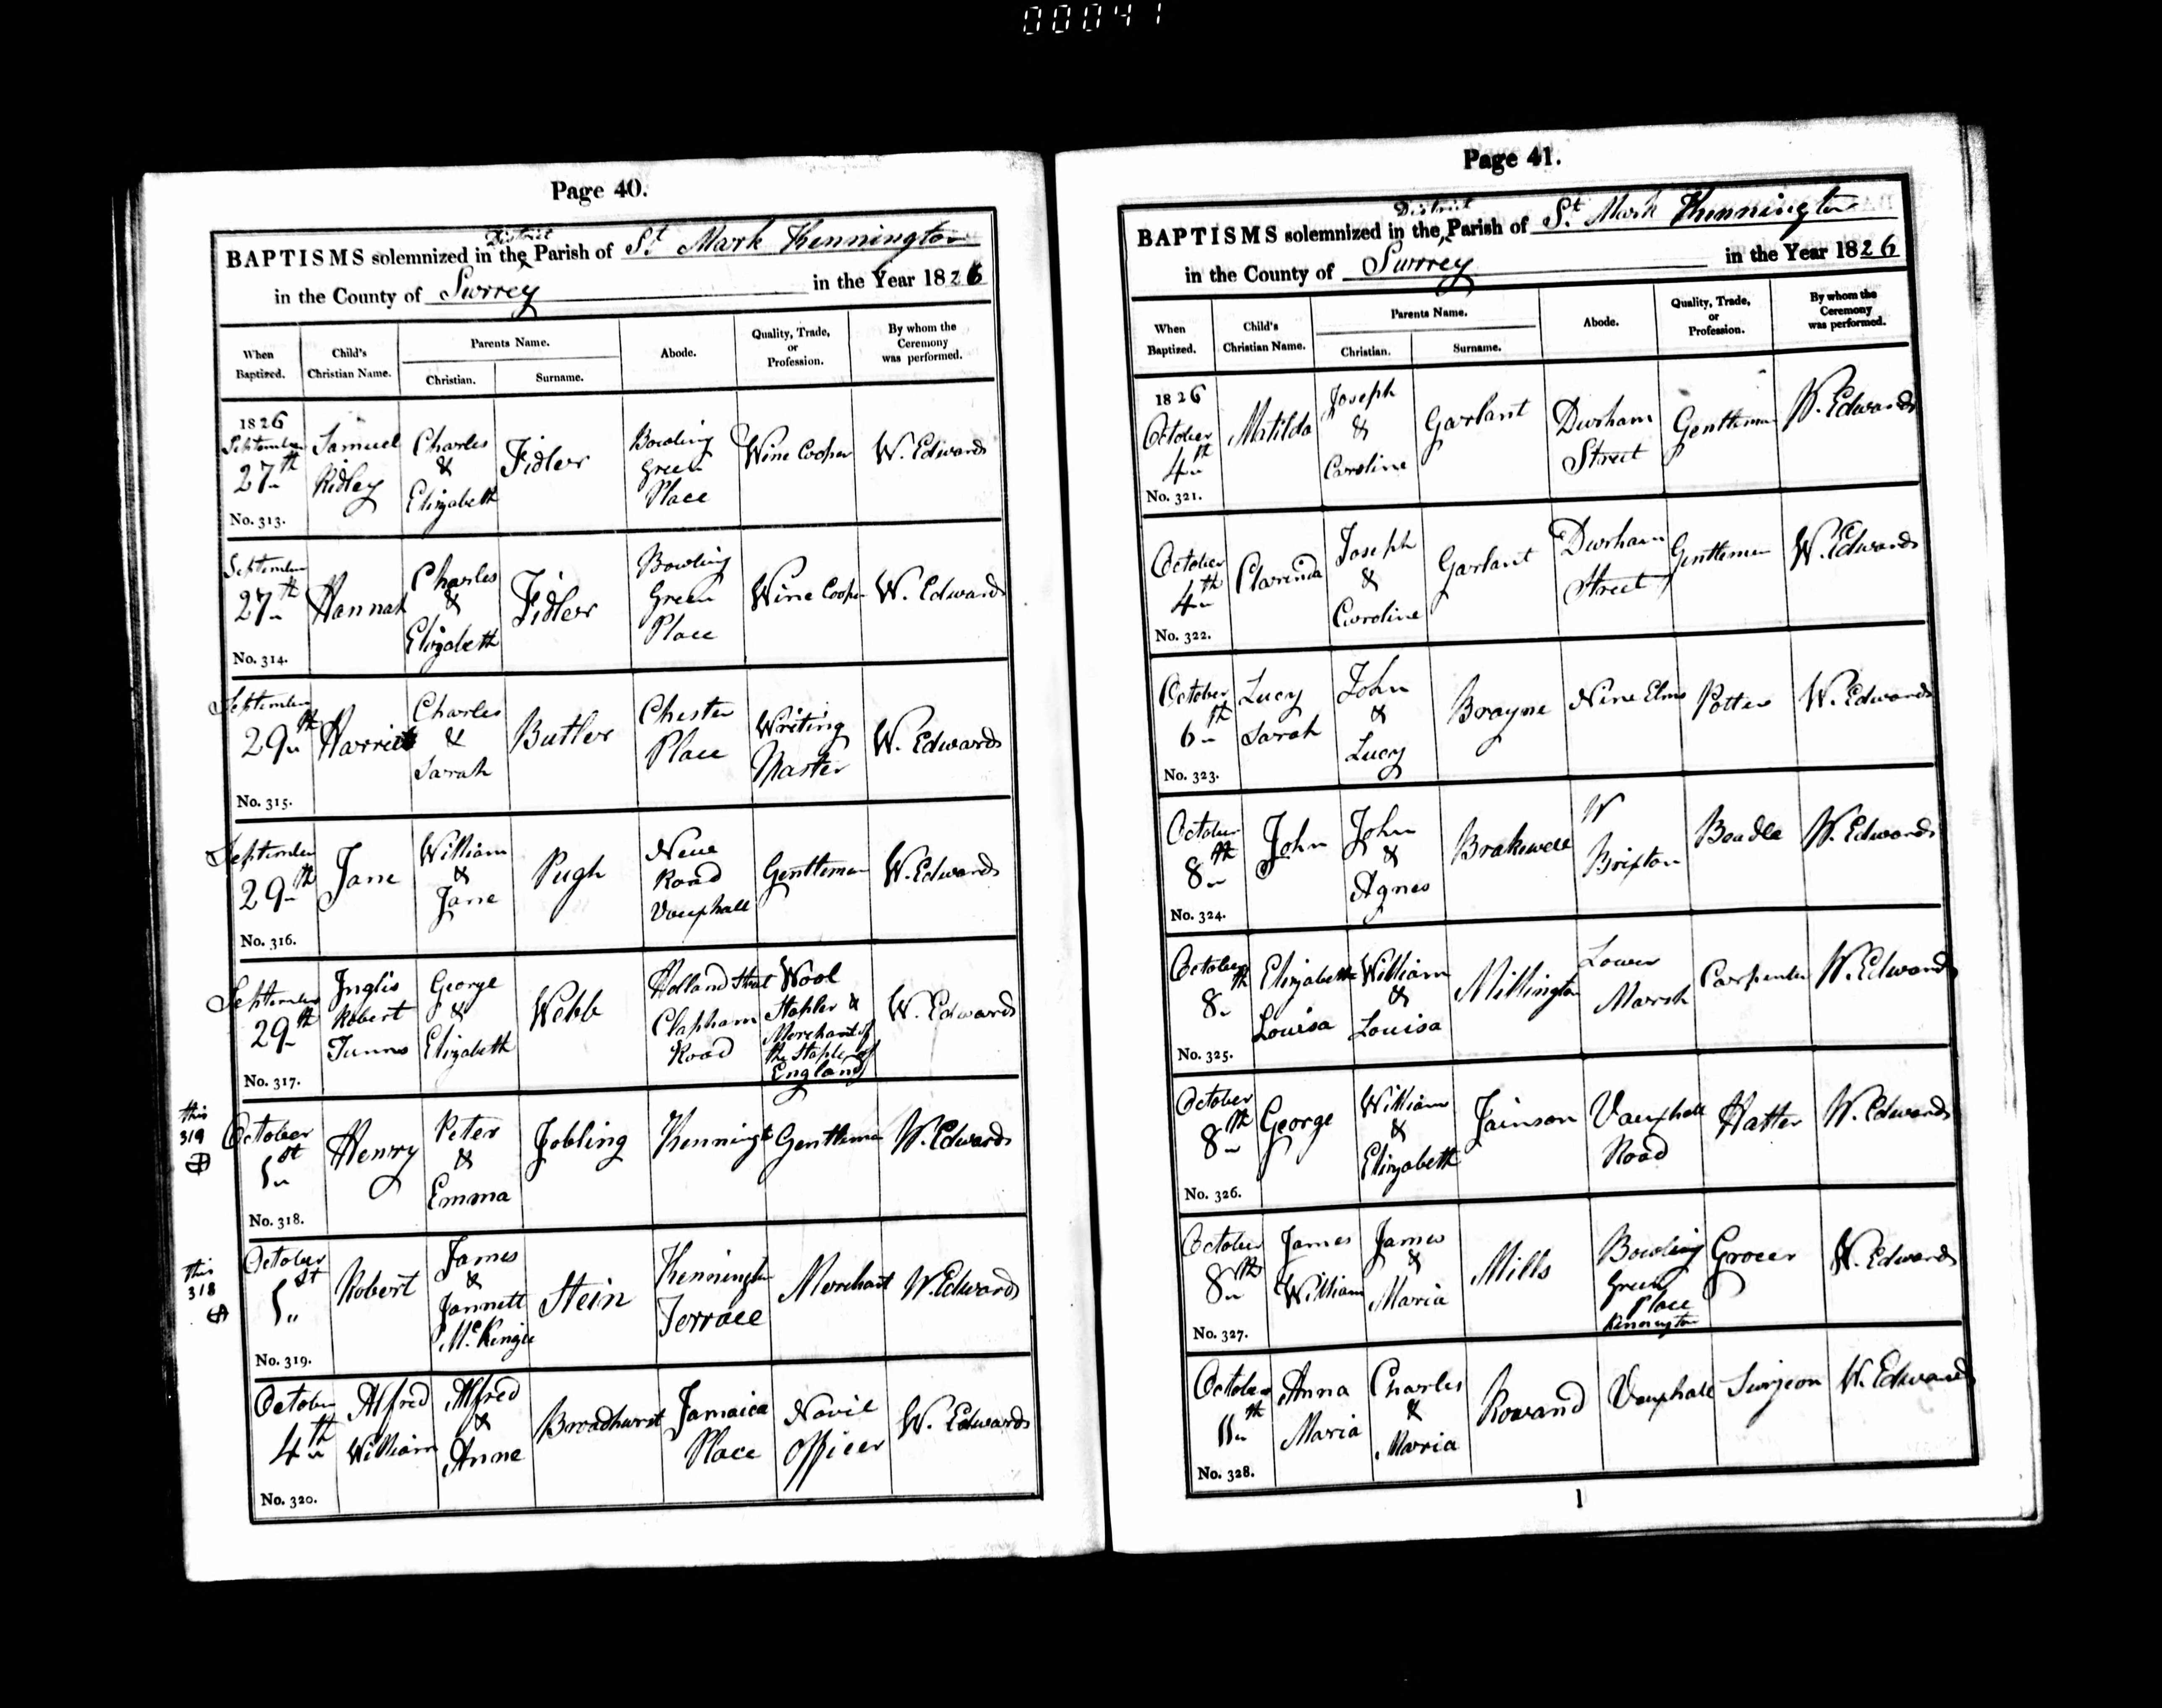 00041
Page 40.
BAPTISMS solemnized in the District Parish of St Mark Kennington
in the County of Surrey in the Year 1826
When Baptized. Child's Christian Name. Parents Name. Christian. Surname. Abode. Quality, Trade, or Profession. By whom the Ceremony was performed.
1826 September 27th No. 313. Samuel Ridley Charles & Elizabeth Fidler Bowling Green Place Wine Cooper W. Edwards
September 27th No. 314. Hannah Charles & Elizabeth Fidler Bowling Green Place Wine Cooper W. Edwards
September 29th No. 315. Harriet Charles & Sarah Butler Chester Place Writing Master W. Edwards
September 29th No. 316. Jane William & Jane Pugh New Road Vauxhall Gentleman W. Edwards
September 29th No. 317. Inglis Robert George & Elizabeth Webb Holland Street Clapham Road Wool Stapler & Merchant of the Staple of England W. Edwards
this 319
October 1st No. 318. Henry Peter & Emma Jobling Kenningt Gentleman W. Edwards
this 318
October 1st No. 319. Robert James & Jannett McKenzie Stein Kennington Terrace Merchant W. Edwards
October 4th No. 320. Alfred William Alfred & Anne Broadhurst Jamaica Place Navil Officer W. Edwards
Page 41.
BAPTISMS solemnized in the District Parish of St Mark Kennington
in the County of Surrey in the Year 1826
When Baptized. Child's Christian Name. Parents Name. Christian. Surname. Abode. Quality, Trade, or Profession. By whom the Ceremony was performed.
1826 October 4th No. 321. Matilda Joseph & Caroline Garlant Durham Street Gentleman W. Edwards
October 4th No. 322. Clarinda Joseph & Caroline Garlant Durham Street Gentleman W. Edwards
October 6th No. 323. Lucy Sarah John & Lucy Brayne Nine Elms Potter W. Edwards
October 8th No. 324. John John & Agnes Brakewell W Brixton Beadle W. Edwards
October 8th No. 325. Elizabeth Louisa William & Louisa Millington Lower Marsh Carpenter W. Edwards
October 8th No. 326. George William & Elizabeth Jainson Vauxhall Road Hatter W. Edwards
October 8th No. 327. James William James & Maria Mills Bowling Green Place Kennington Grocer W. Edwards
October 11th No. 328. Anna Maria Charles & Maria Rowand Vauxhall Surgeon W. Edwards